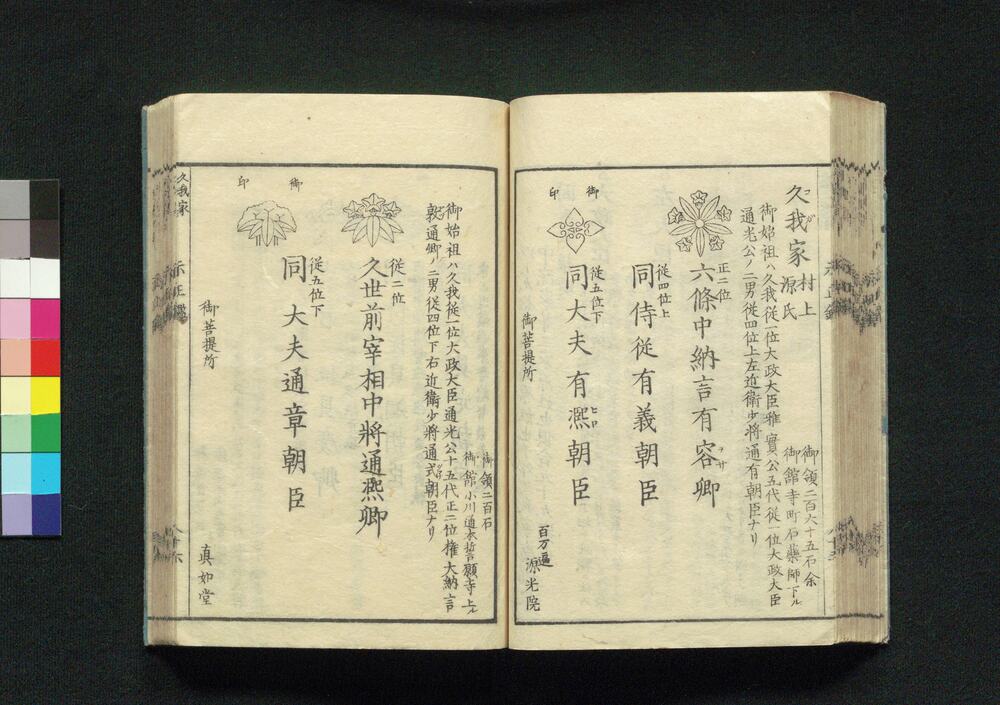 久我家 村上源氏
御領二百六十五石余
御館寺町石薬師下ル
御始祖ハ久我従一位大政大臣雅實公五代従一位大政大臣
通光公ノ二男従四位上左近衛少将通有朝臣ナリ
正二位
六條中納言有容卿
従四位上
同侍従有義朝臣
御印
従五位下
同大夫有凞朝臣
御菩提所
百万遍
源光院
御領二百石
御館小川通本誓願寺上ル
御始祖ハ久我従一位大政大臣通光公十五代正二位権大納言
敦通卿ノ二男従四位下右近衛少将通式朝臣ナリ
従二位
久世前宰相中將通凞卿
御印
従五位下
同大夫通章朝臣
御菩提所
真如堂
久我家